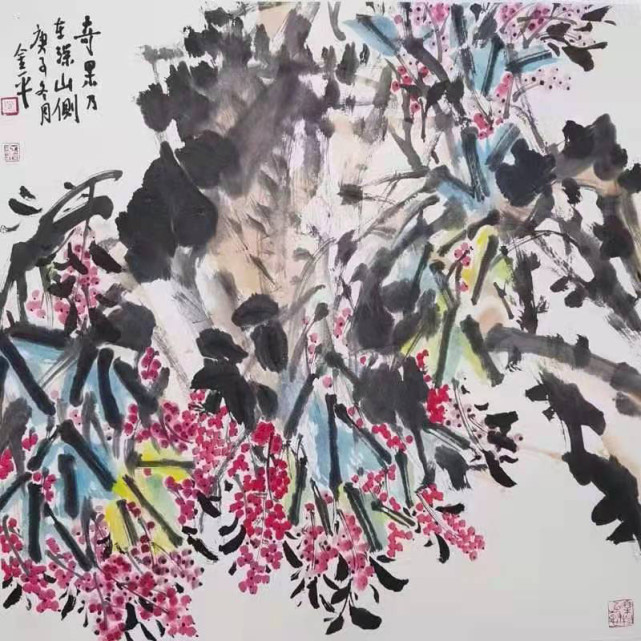 奇果乃
在深山侧
庚子冬月
金平